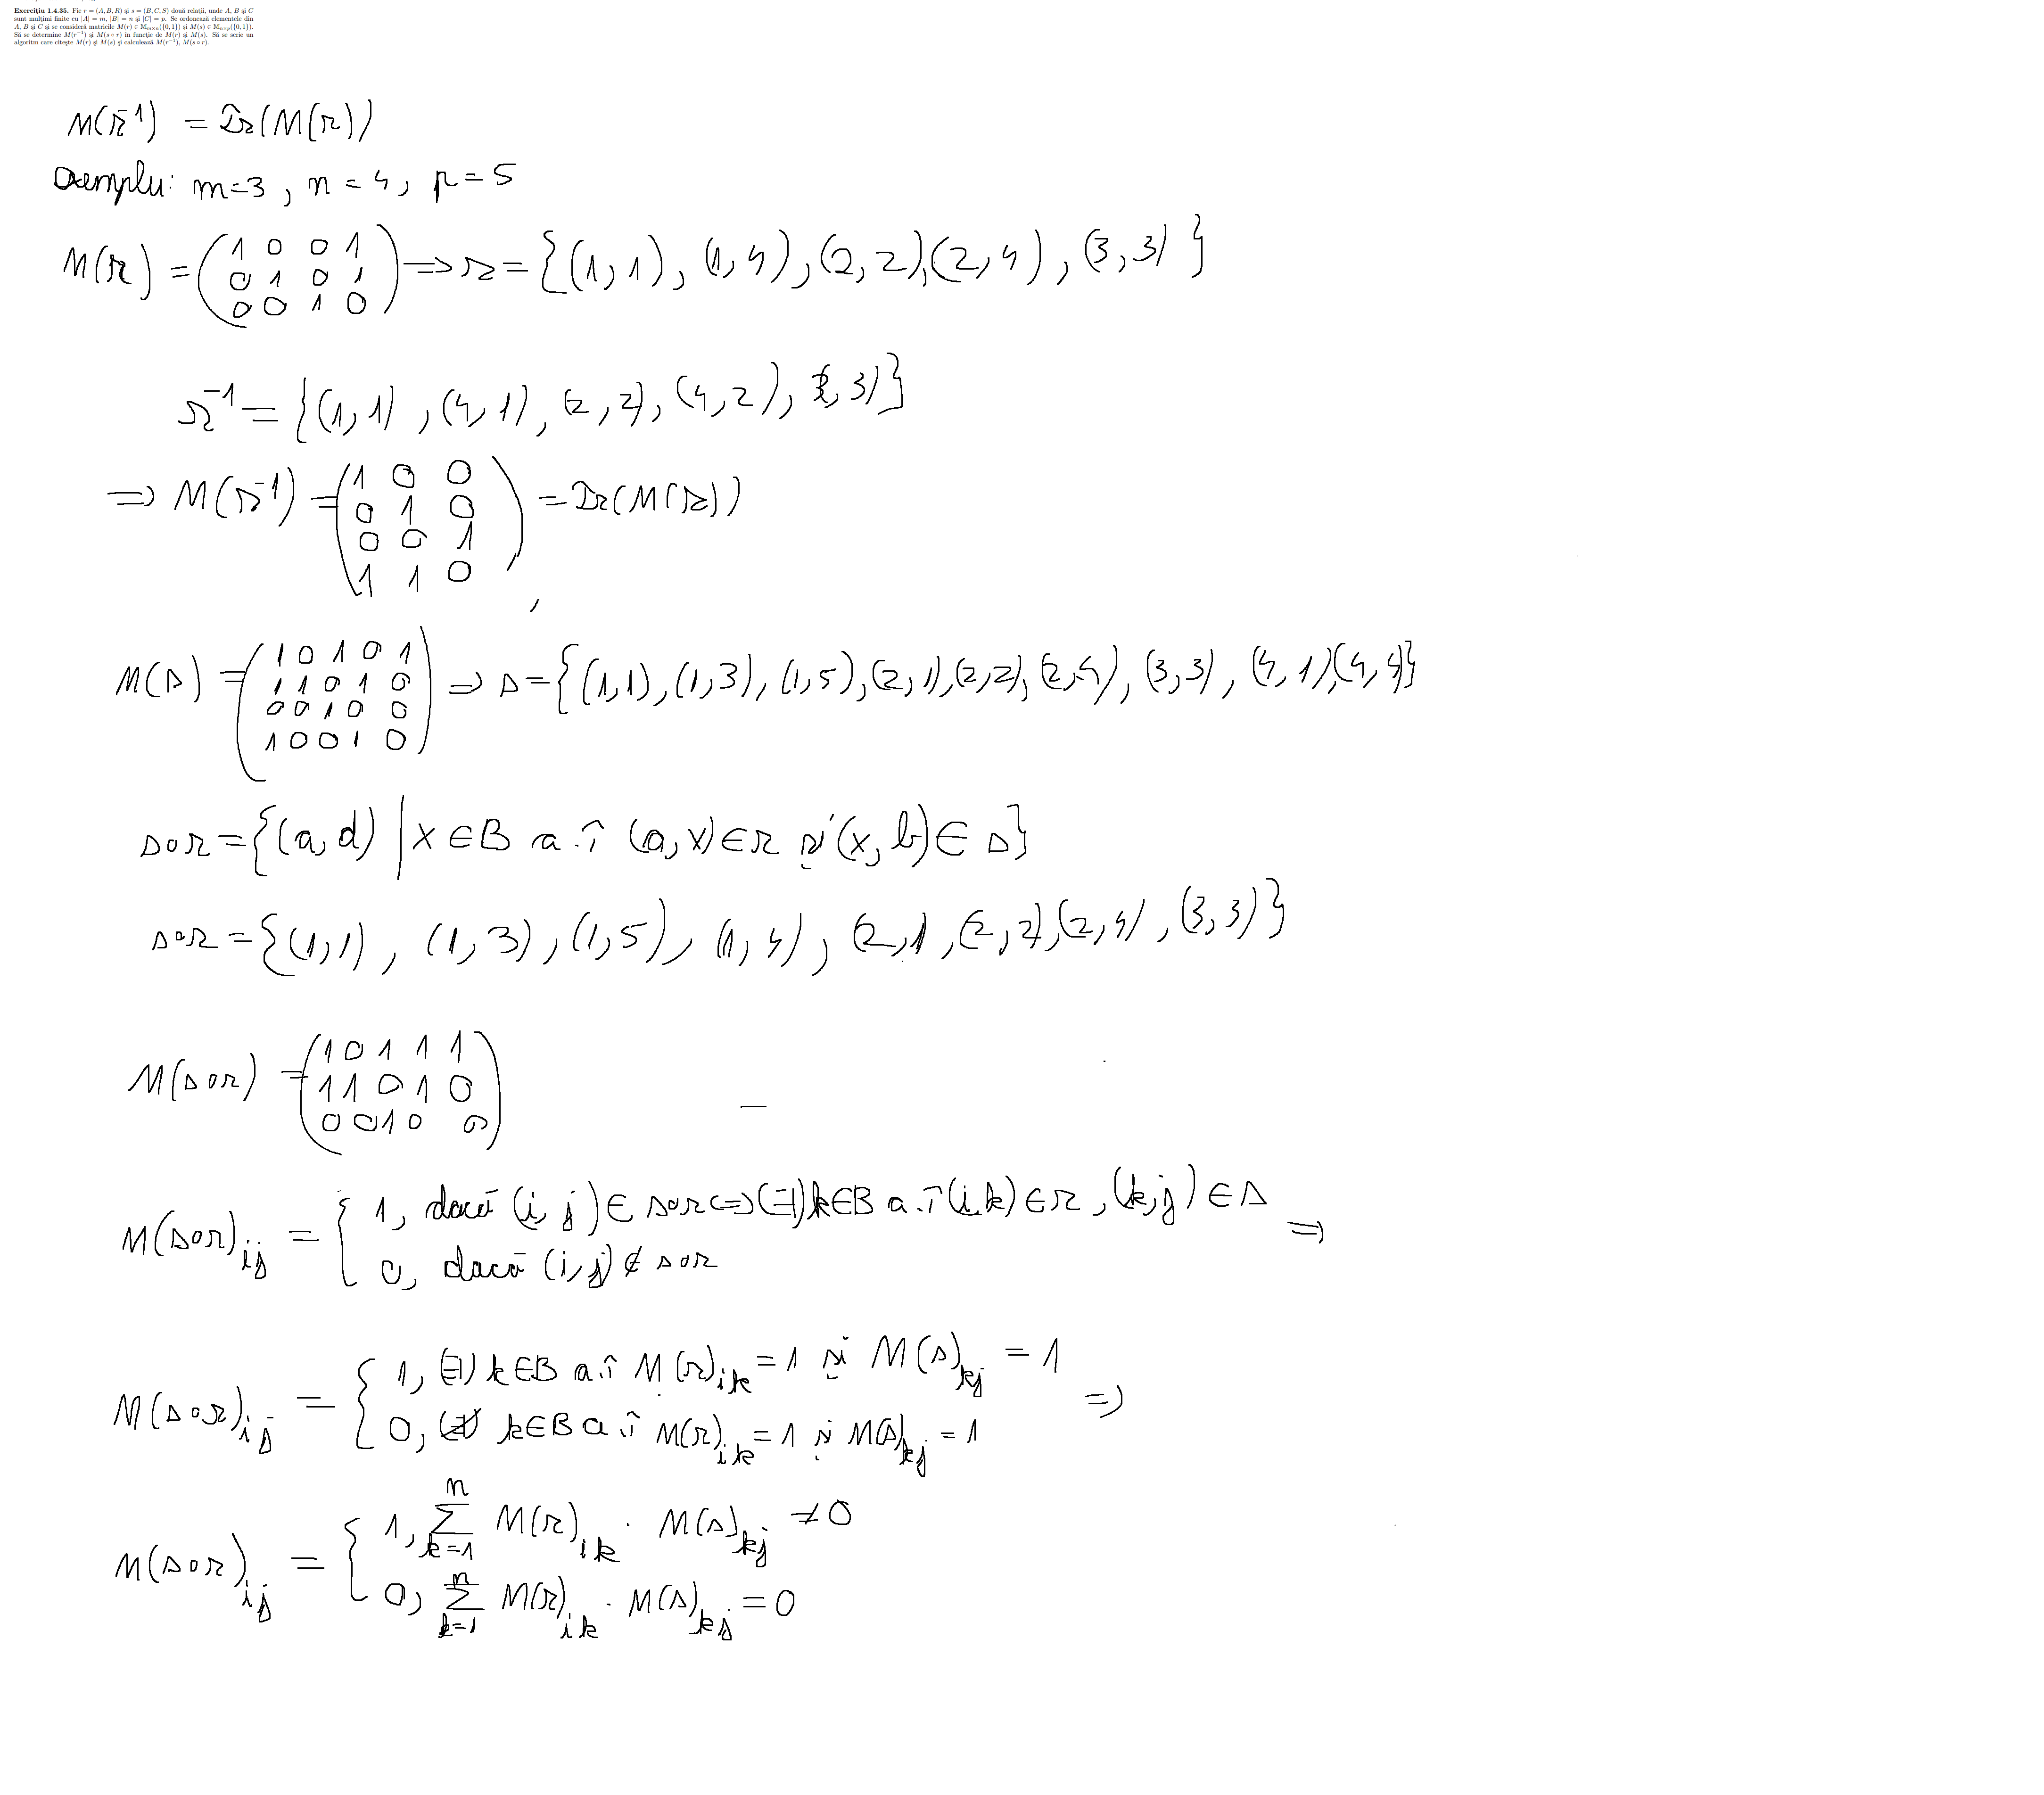 Exercițiu 1.4.35. Fie r = (A, B, R) și s = (B, C, S) două relații, unde A, B și C
sunt mulțimi finite cu |A| = m, |B| = n și |C| = p. Se ordonează elementele din
A, B și C și se consideră matricile M(r) ∈ M_{m×n}({0,1}) și M(s) ∈ M_{n×p}({0,1}).
Să se determine M(r⁻¹) și M(s ∘ r) în funcție de M(r) și M(s). Să se scrie un
algoritm care citește M(r) și M(s) și calculează M(r⁻¹), M(s ∘ r).
M(r⁻¹) = Tr(M(r))
Exemplu: m=3, n=4, p=5
M(r) = (1 0 0 1 / 0 1 0 1 / 0 0 1 0) => r = {(1,1), (1,4), (2,2), (2,4), (3,3)}
r⁻¹ = {(1,1), (4,1), (2,2), (4,2), (3,3)}
=> M(r⁻¹) = (1 0 0 / 0 1 0 / 0 0 1 / 1 1 0) = Tr(M(r))
M(s) = (1 0 1 0 1 / 1 1 0 1 0 / 0 0 1 0 0 / 1 0 0 1 0) => s = {(1,1), (1,3), (1,5), (2,1), (2,2), (2,4), (3,3), (4,1), (4,4)}
s∘r = {(a,d) | x ∈ B a.î (a,x) ∈ r și (x,b) ∈ s}
s∘r = {(1,1), (1,3), (1,5), (1,4), (2,1), (2,2), (2,4), (3,3)}
M(s∘r) = (1 0 1 1 1 / 1 1 0 1 0 / 0 0 1 0 0)
M(s∘r)_ij = { 1, dacă (i,j) ∈ s∘r <=> (∃) k∈B a.î (i,k) ∈ r, (k,j) ∈ s =>
0, dacă (i,j) ∉ s∘r
M(s∘r)_ij = { 1, (∃) k∈B a.î M(r)_ik = 1 și M(s)_kj = 1 =>
0, (∄) k∈B a.î M(r)_ik = 1 și M(s)_kj = 1
M(s∘r)_ij = { 1, Σ_{k=1}^{n} M(r)_ik · M(s)_kj ≠ 0
0, Σ_{k=1}^{n} M(r)_ik · M(s)_kj = 0